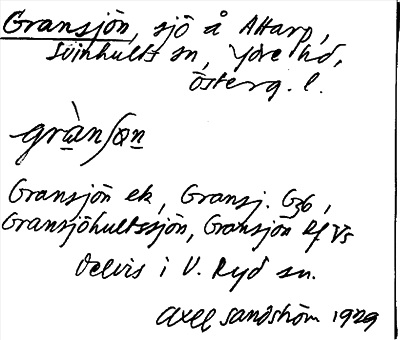 Gransjön, sjö å Altarp,
Svinhults sn, Ydre hd,
Österg. l.
grànʃøn
Gransjön ek, Gransj. G36,
Gransjöhultssjön, Gransjön Rf Vs
Delvis i V. Ryd sn.
Axel Sandström 1929